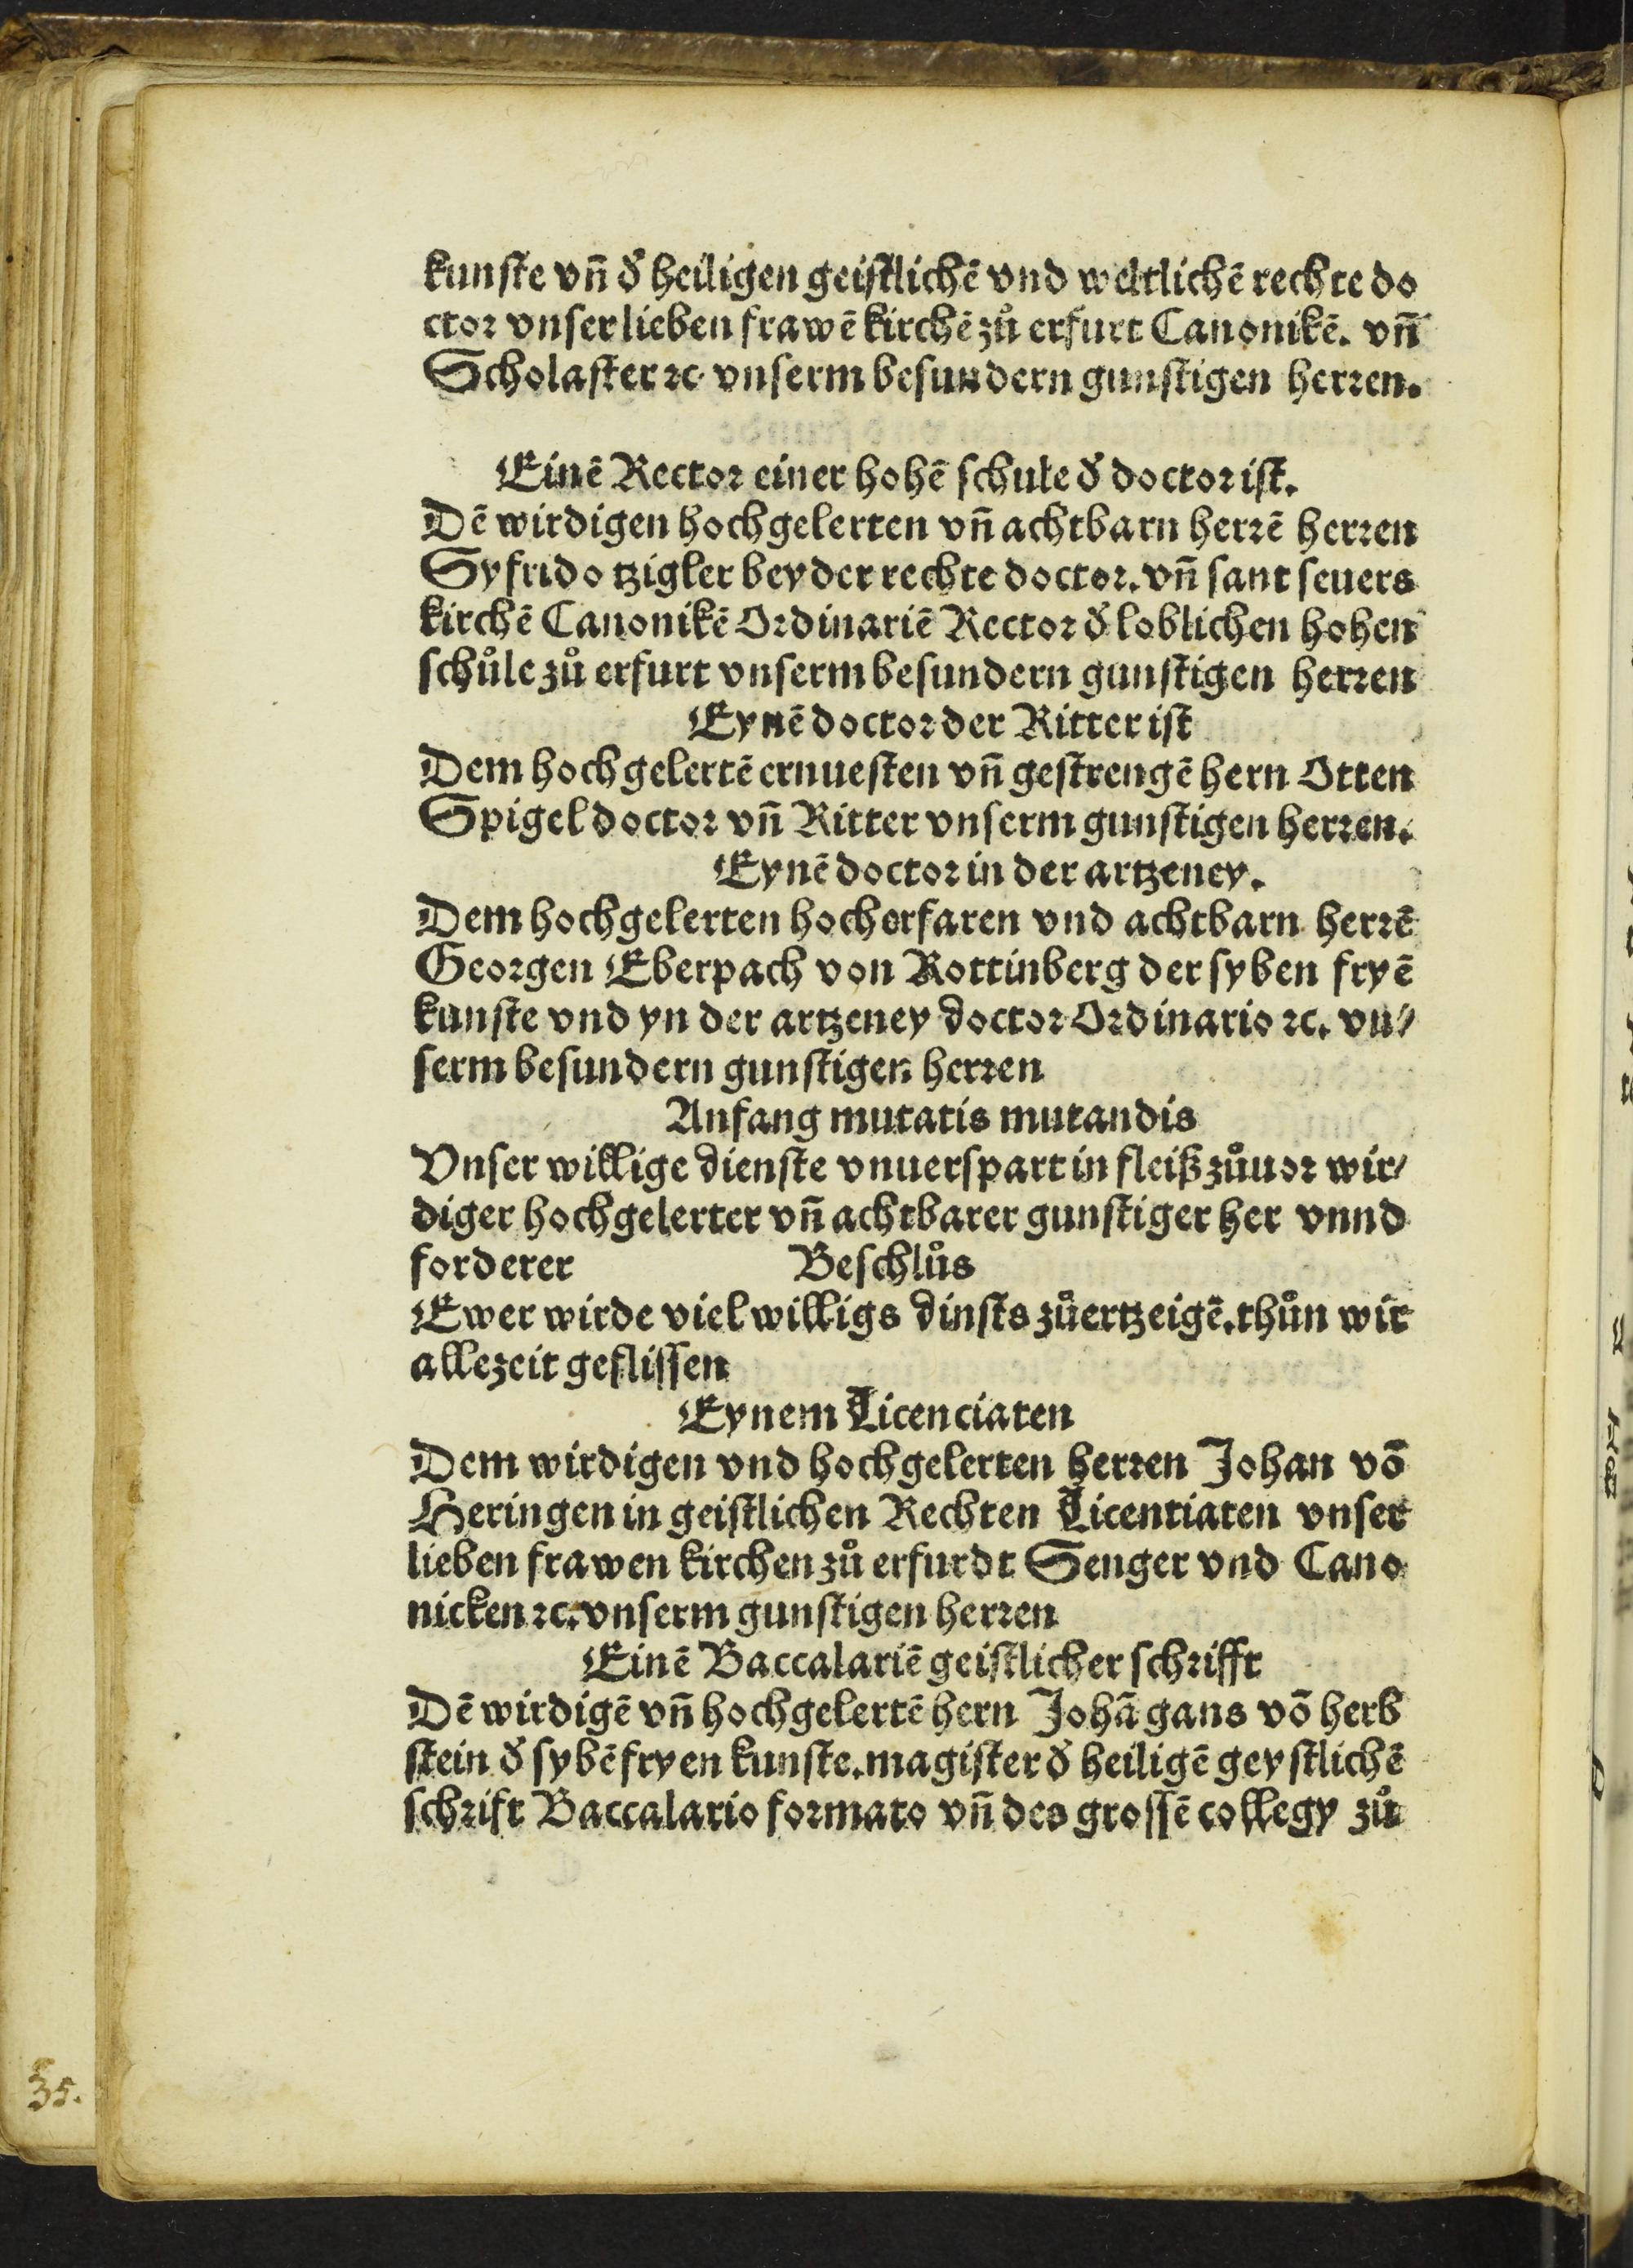 kunste vn̄ d̕ heiligen geistlichē vnd weltlichē rechte do
ctor vnser lieben frawē kirchē zů erfurt Canonikē. vn̄
Scholaster ꝛc. vnserm besundern gunstigen herren.
Einē Rector einer hohē schule d̕ doctor ist.
Dē wirdigen hochgelerten vn̄ achtbarn herrē herren
Syfrido tzigler beyder rechte doctor. vn̄ sant seuers
kirchē Canonikē Ordinariē Rector d̕ loblichen hohen
schůle zů erfurt vnserm besundern gunstigen herren
Eynē doctor der Ritter ist
Dem hochgelertē ernuesten vn̄ gestrengē hern Otten
Spigel doctor vn̄ Ritter vnserm gunstigen herren.
Eynē doctor in der artzeney.
Dem hochgelerten hocherfaren vnd achtbarn herrē
Georgen Eberpach von Rottinberg der syben fryē
kunste vnd yn der artzeney doctor Ordinario ꝛc. vn⸗
serm besundern gunstigen herren
Anfang mutatis mutandis
Vnser willige dienste vnuerspart in fleiß zůuor wir/
diger hochgelerter vn̄ achtbarer gunstiger her vnnd
forderer Beschlůs
Ewer wirde viel willigs dinsts zůertzeigē. thůn wir
allezeit geflissen
Eynem Licenciaten
Dem wirdigen vnd hochgelerten herren Johan vō
Heringen in geistlichen Rechten Licentiaten vnser
lieben frawen kirchen zů erfurdt Senger vnd Cano
nicken ꝛc. vnserm gunstigen herren
Einē Baccalariē geistlicher schrifft
Dē wirdigē vn̄ hochgelertē hern Johā gans vō herb
stein d̕ sybē fryen kunste. magister d̕ heiligē geystlichē
schrift Baccalario formato vn̄ des grossē collegy zů
35.